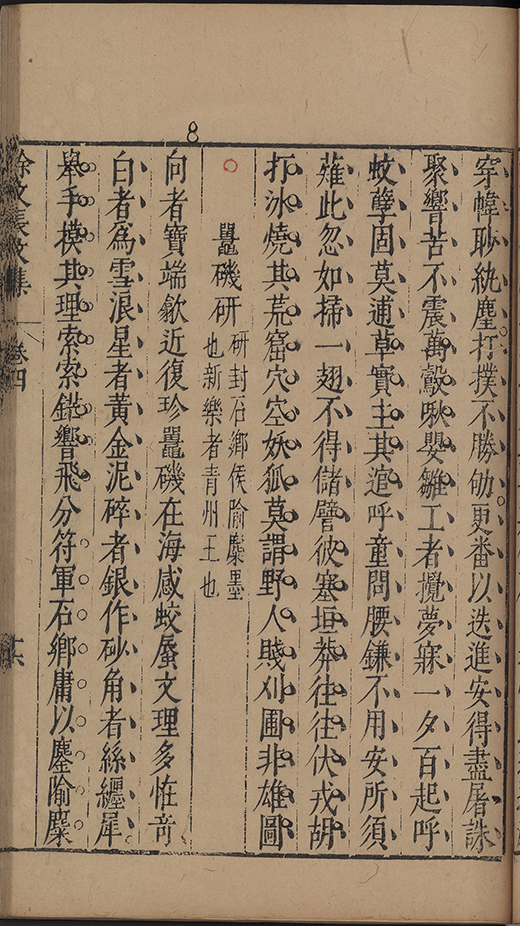 8
穿幃聆紈塵打撲不勝劬更番以迭進安得盡屠誅
聚響苦不震萬鷇啾嬰雛工者攪夢寐一夕百起呼
蚊孽固莫逋草實主其逭呼童問腰鎌不用安所須
薙此忽如掃一翅不得儲譬彼塞垣莽往往伏戎胡
打冰燒其荒窟穴空妖狐莫謂野人賤刈圃非雄圖
鼉磯研
研封石鄉侯隃麋墨
也新樂者青州王也
向者寶端歙近復珍鼉磯在海感蛟蜃文理多恠奇
白者為雪浪星者黃金泥碎者銀作砂角者絲纏犀
舉手摸其理索索錯響飛分符軍石鄉庸以鏖隃麋
徐文長文集
卷四
十六